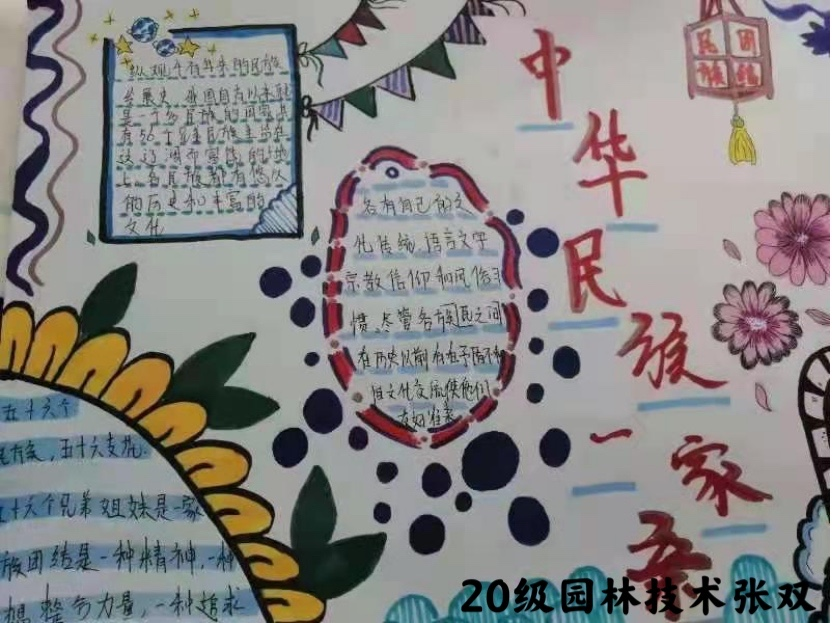 纵观千百年来的民族
发展史，我国自古以来就
是一个多民族的国家共
有56个民族生活在
这辽阔而富饶的土地
上，各民族都有悠久
的历史和丰富的
文化
各有自己的文
化传统、语言文字
宗教信仰和风俗习
惯、尽管各族民之间
在历史以前存在矛盾不和
但文化交流使他们
友好往来
五十六个
民族，五十六支花.
五十六个兄弟姐妹是一家
族团结是一种精神，一种
量，一种追求
中华民族一家亲
民团
族结
20级园林技术张双